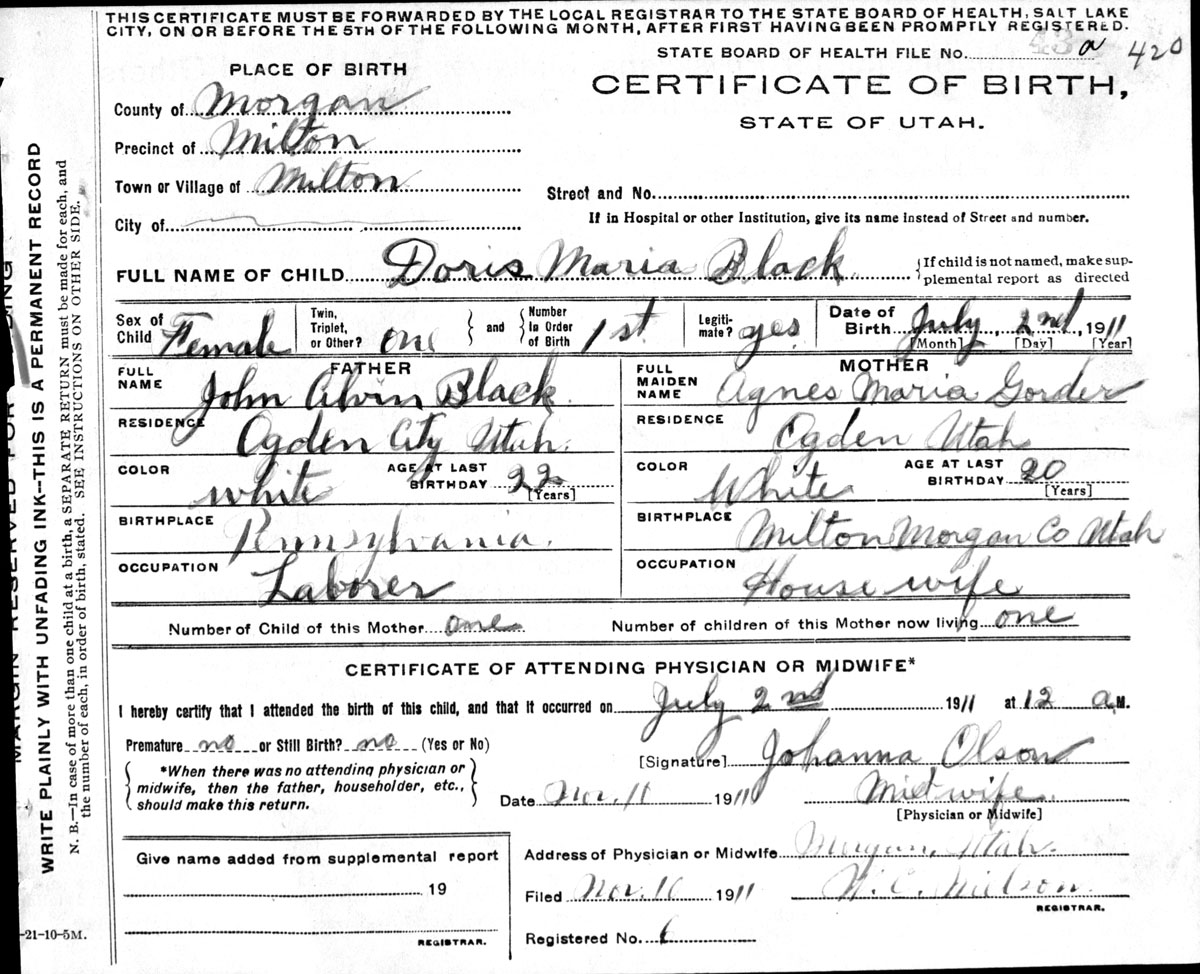 THIS CERTIFICATE MUST BE FORWARDED BY THE LOCAL REGISTRAR TO THE STATE BOARD OF HEALTH, SALT LAKE
CITY, ON OR BEFORE THE 5TH OF THE FOLLOWING MONTH, AFTER FIRST HAVING BEEN PROMPTLY REGISTERED.
STATE BOARD OF HEALTH FILE No. a 420
PLACE OF BIRTH
CERTIFICATE OF BIRTH,
STATE OF UTAH.
County of Morgan
Precinct of Milton
Town or Village of Milton
Street and No.
City of
If in Hospital or other Institution, give its name instead of Street and number.
FULL NAME OF CHILD Doris Maria Black
If child is not named, make sup-
plemental report as directed
Sex of Child Female
Twin, Triplet, or Other? one and Number In Order of Birth 1st.
Legiti-mate? yes
Date of Birth July, 2nd, 1911
[Month] [Day] [Year]
FATHER
FULL NAME John Alvin Black
RESIDENCE Ogden City Utah.
COLOR white AGE AT LAST BIRTHDAY 22 [Years]
BIRTHPLACE Pennsylvania.
OCCUPATION Laborer
MOTHER
FULL MAIDEN NAME Agnes Maria Gorder
RESIDENCE Ogden Utah
COLOR White AGE AT LAST BIRTHDAY 20 [Years]
BIRTHPLACE Milton Morgan Co Utah
OCCUPATION House wife
Number of Child of this Mother one
Number of children of this Mother now living one
CERTIFICATE OF ATTENDING PHYSICIAN OR MIDWIFE*
I hereby certify that I attended the birth of this child, and that it occurred on July 2nd 1911 at 12 a.M.
Premature no or Still Birth? no (Yes or No)
*When there was no attending physician or
midwife, then the father, householder, etc.,
should make this return.
[Signature] Johanna Olson
Date Nov. 11 1911 Mid wife.
[Physician or Midwife]
Give name added from supplemental report
19
REGISTRAR.
Address of Physician or Midwife Morgan, Utah.
Filed Nov. 11 1911 REGISTRAR.
Registered No. 6
-21-10-5M.
MARGIN RESERVED FOR
WRITE PLAINLY WITH UNFADING INK--THIS IS A PERMANENT RECORD
N. B.—In case of more than one child at a birth, a SEPARATE RETURN must be made for each, and
the number of each, in order of birth, stated. SEE INSTRUCTIONS ON OTHER SIDE.